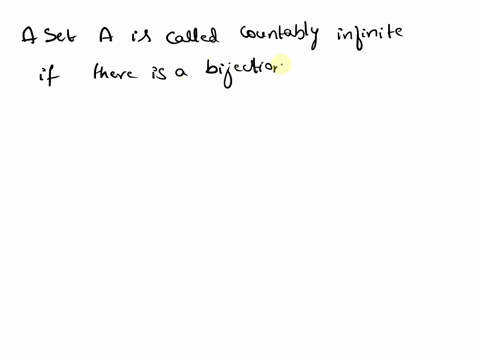 A set A is called countably infinite
if there is a bijection